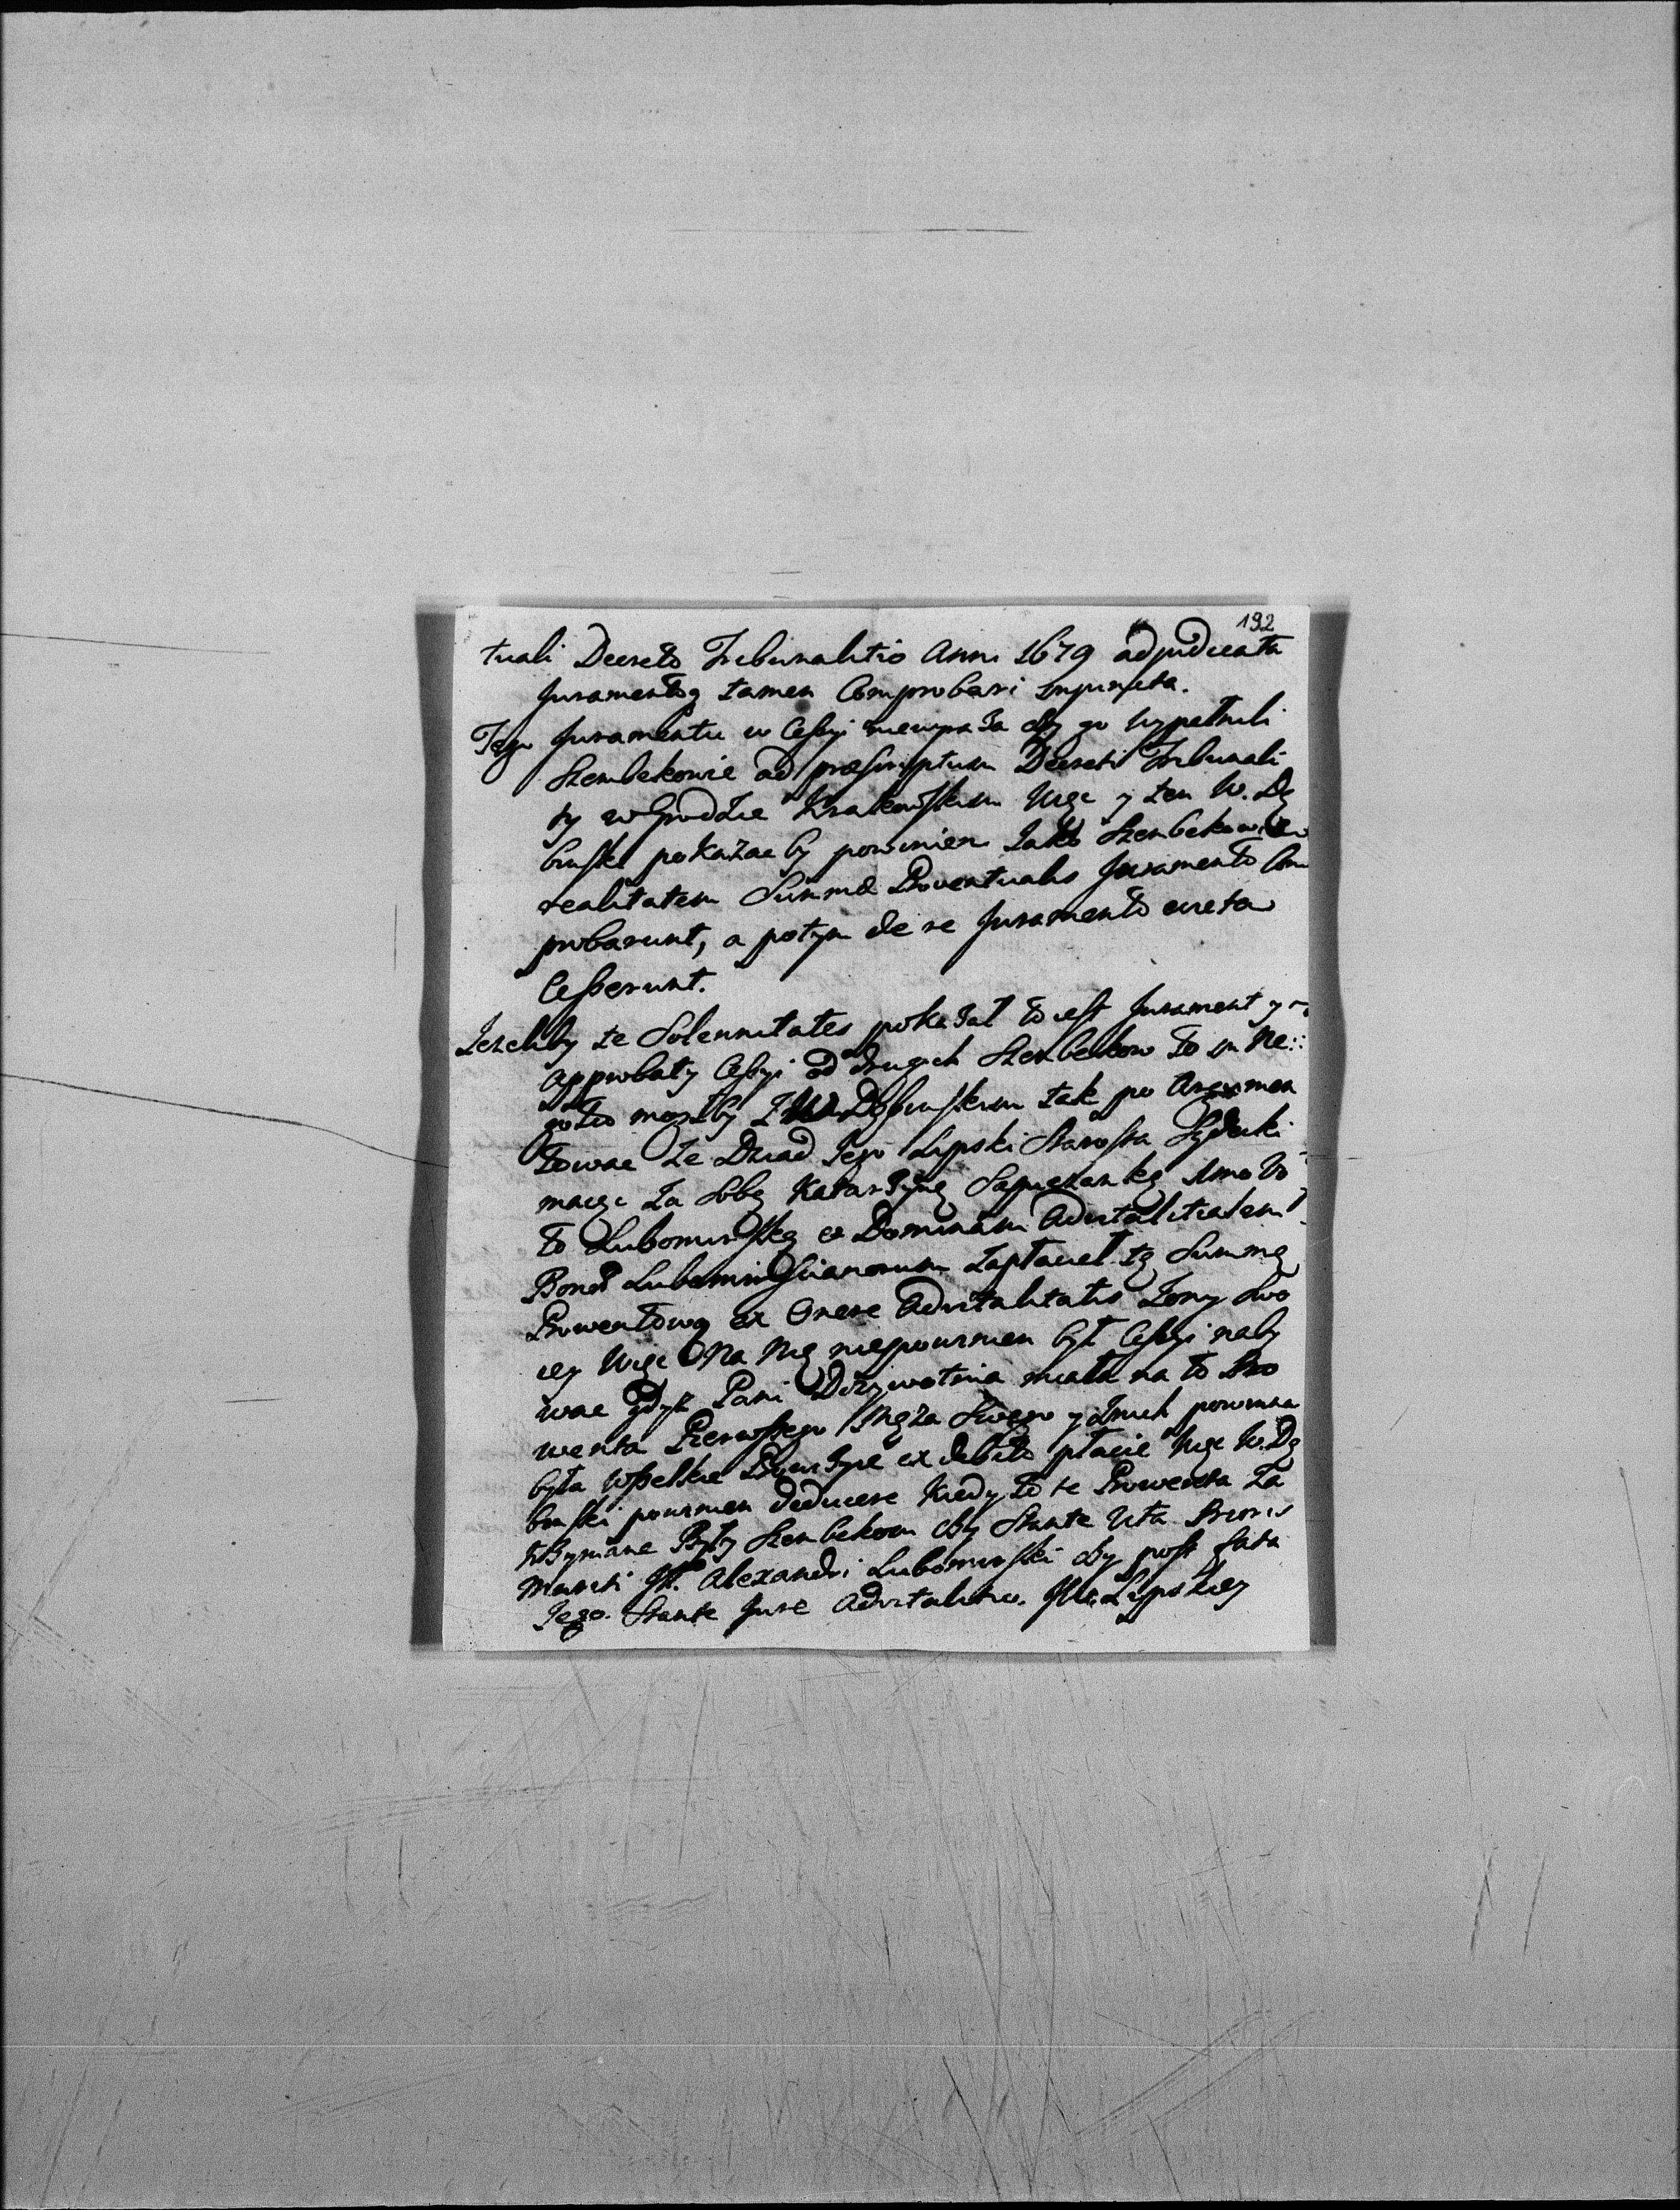 192
tuali Decreto Tribunalitio Anni 1679 adjudicata
Juramentoq tamen Comprobari Injuncta.
Tego Juramentu w Cessyi niewyraża aby go wypełnili
Szembekowie ad præscriptum Decreti Tribunali
ty w Grodzie Krakowskim Więc y ten W. Dę
binski pokazać by powinien Jako Szembekowie
realitatem Summæ Proventualis Juramento Com
probarunt, a potym de re Juramento evicta
Cesserunt.
Jezeliby te Solennitates pokazał to iest Jurament y
Approbaty Cessyi od drugich Szembekow to in Ne::
gotio mozłby z W Dębinskim tak po Argumen
towac Ze Dziad Jego Lipski Starosta Sądecki
maiąc Za Sobą Katarzynę Sapiezankę 1mo Vo
to Lubomirską et Dominam Advitalitialem
Bonor Lubomirscianorum Zapłacił tę Summę
Prowentową ex Onere Advitalitatis Zony Swo
iey Więc Na Nię niepowinien był Cessyi naby
wac gdyż Pani Dożywotnia miała na to Pro
wenta Pierwszego Męża Swego y Znich powinna
była wszelkie Prowizye ex debito płacic Więc W. Dę
binski powinien deducere Kiedy to te Prowenta Za
trzymane Były Szembekom czy Stante Vita Prioris
Mariti Jll. Alexandri Lubomirski czy post fata
Jego. Stante Jure Advitalitio. Jll. Lipskiey